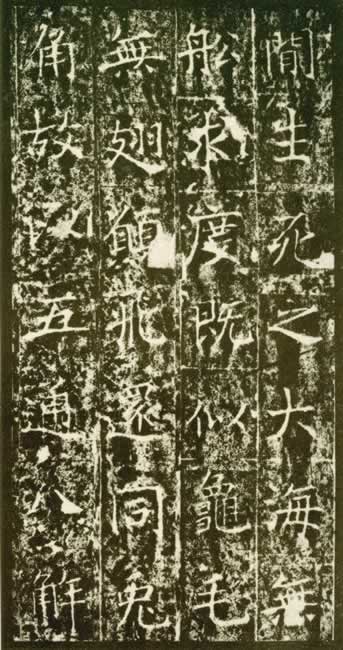 閒生死之大海無
船求度既似龜毛
無翅願飛還同兔
角故以五通八解